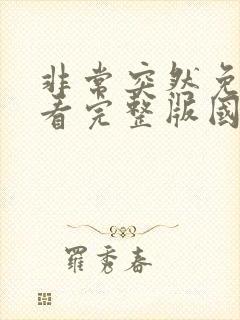 非常突然免
看完整版國
羅秀春